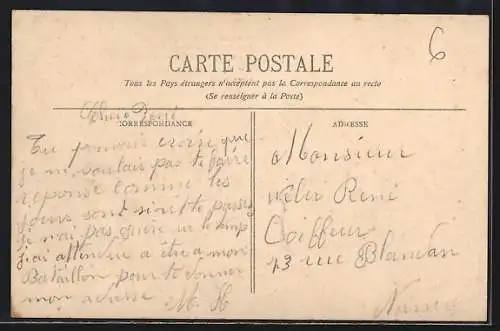 6
CARTE POSTALE
Tous les Pays étrangers n'acceptent pas la Correspondance au recto
(Se renseigner à la Poste)
René
CORRESPONDANCE
ADRESSE
Tu pourrais croire que
je ne voulais pas te faire
reponse comme les
jours sont vite passés
je n'ai pas guere eu le temp
j'ai attendue a être a mon
Bataillon pour te donner
mon adresse M. H
Monsieur
René
Coiffeur
13 rue Blandan
Nancy